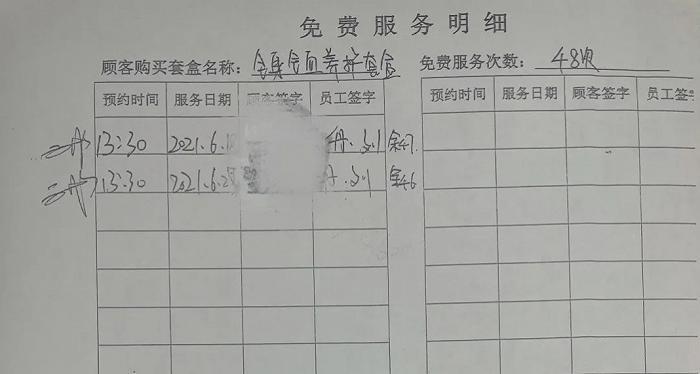 免费服务明细
顾客购买套盒名称: 面养护套盒 免费服务次数: 48次
预约时间 服务日期 顾客签字 员工签字 预约时间 服务日期 顾客签字 员工签
13:30 2021.6. 余47.
13:30 2021.6.2 余46